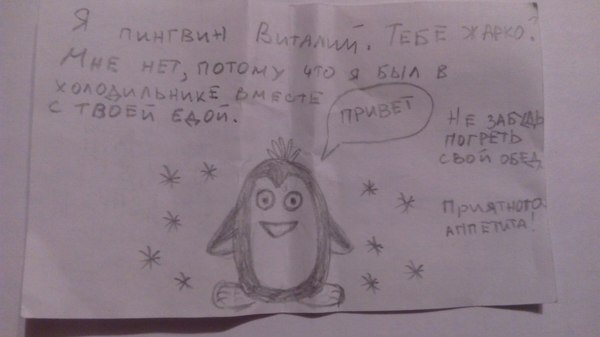 Я пингвин Виталий. Тебе жарко?
Мне нет, потому что я был в
холодильнике вместе
с твоей едой.
Привет
Не забудь
погреть
свой обед
Приятного
аппетита!